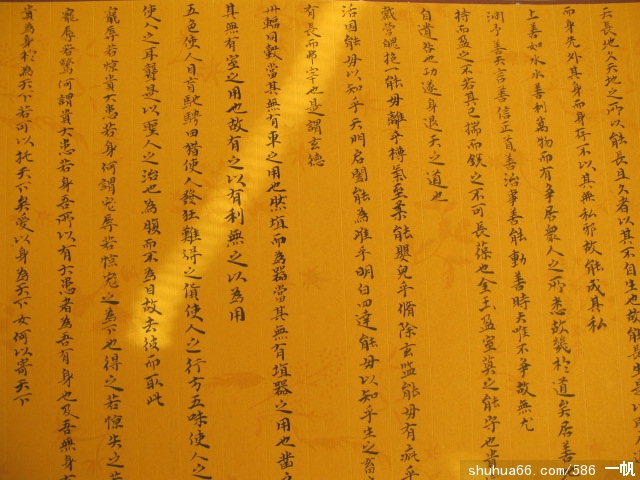 天長地久天地之所以能長且久者以其不自生也故能長生
而身先外其身而身存不以其無私邪故能成其私
上善如水水善利萬物而有爭居衆人之所惡故幾於道矣居善
淵予善天言善信正善治事善能動善時夫唯不爭故無尤
持而盈之不若其已揣而銳之不可長葆也金玉盈室莫之能守也貴
自遺咎也功遂身退天之道也
戴營魄抱能毋離乎槫氣至柔能嬰兒乎脩除玄監能毋有疵乎
治國能毋以知乎天門启闔能為雌乎明白四達能毋以知乎生之畜
有長而弗宰也是謂玄德
卅輻同轂當其無有車之用也埏埴而為器當其無有埴器之用也鑿
其無有室之用也故有之以有利無之以為用
五色使人目盲馳騁田獵使人發狂難得之貨使人之行方五味使人之
使人之耳聾是以聖人之治也為腹而不為目故去彼而取此
寵辱若惊貴大患若身何謂寵辱若惊寵之為下也得之若惊失之若
寵辱若驚何謂貴大患若身吾所以有大患者為吾有身也及吾無身
貴為身於為天下若可以托天下矣愛以身為天下女何以寄天下
shuhua66.com/586 一帆